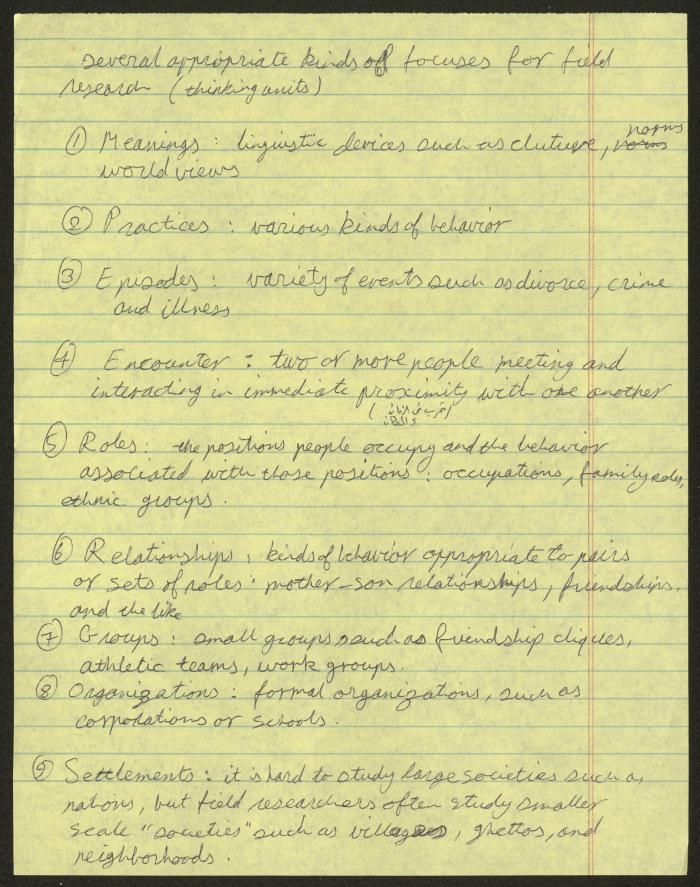 several appropriate kinds of focuses for field
research (thinking units)
① Meanings : linguistic devices such as cluture, norms
norms
world views
② Practices : various kinds of behavior
③ Episodes : variety of events such as divorce, crime
and illness
④ Encounter : two or more people meeting and
interacting in immediate proximity with one another
⑤ Roles : the positions people occupy and the behavior
associated with those positions : occupations, family roles,
ethnic groups .
⑥ Relationships : kinds of behavior appropriate to pairs
or sets of roles : mother-son relationships, friendships,
and the like
⑦ Groups : small groups, such as friendship cliques,
athletic teams, work groups.
⑧ Organizations : formal organizations, such as
corporations or schools .
⑨ Settlements : it is hard to study large societies such as
nations, but field researchers often study smaller
scale "societies" such as villages, ghettos, and
neighborhoods .